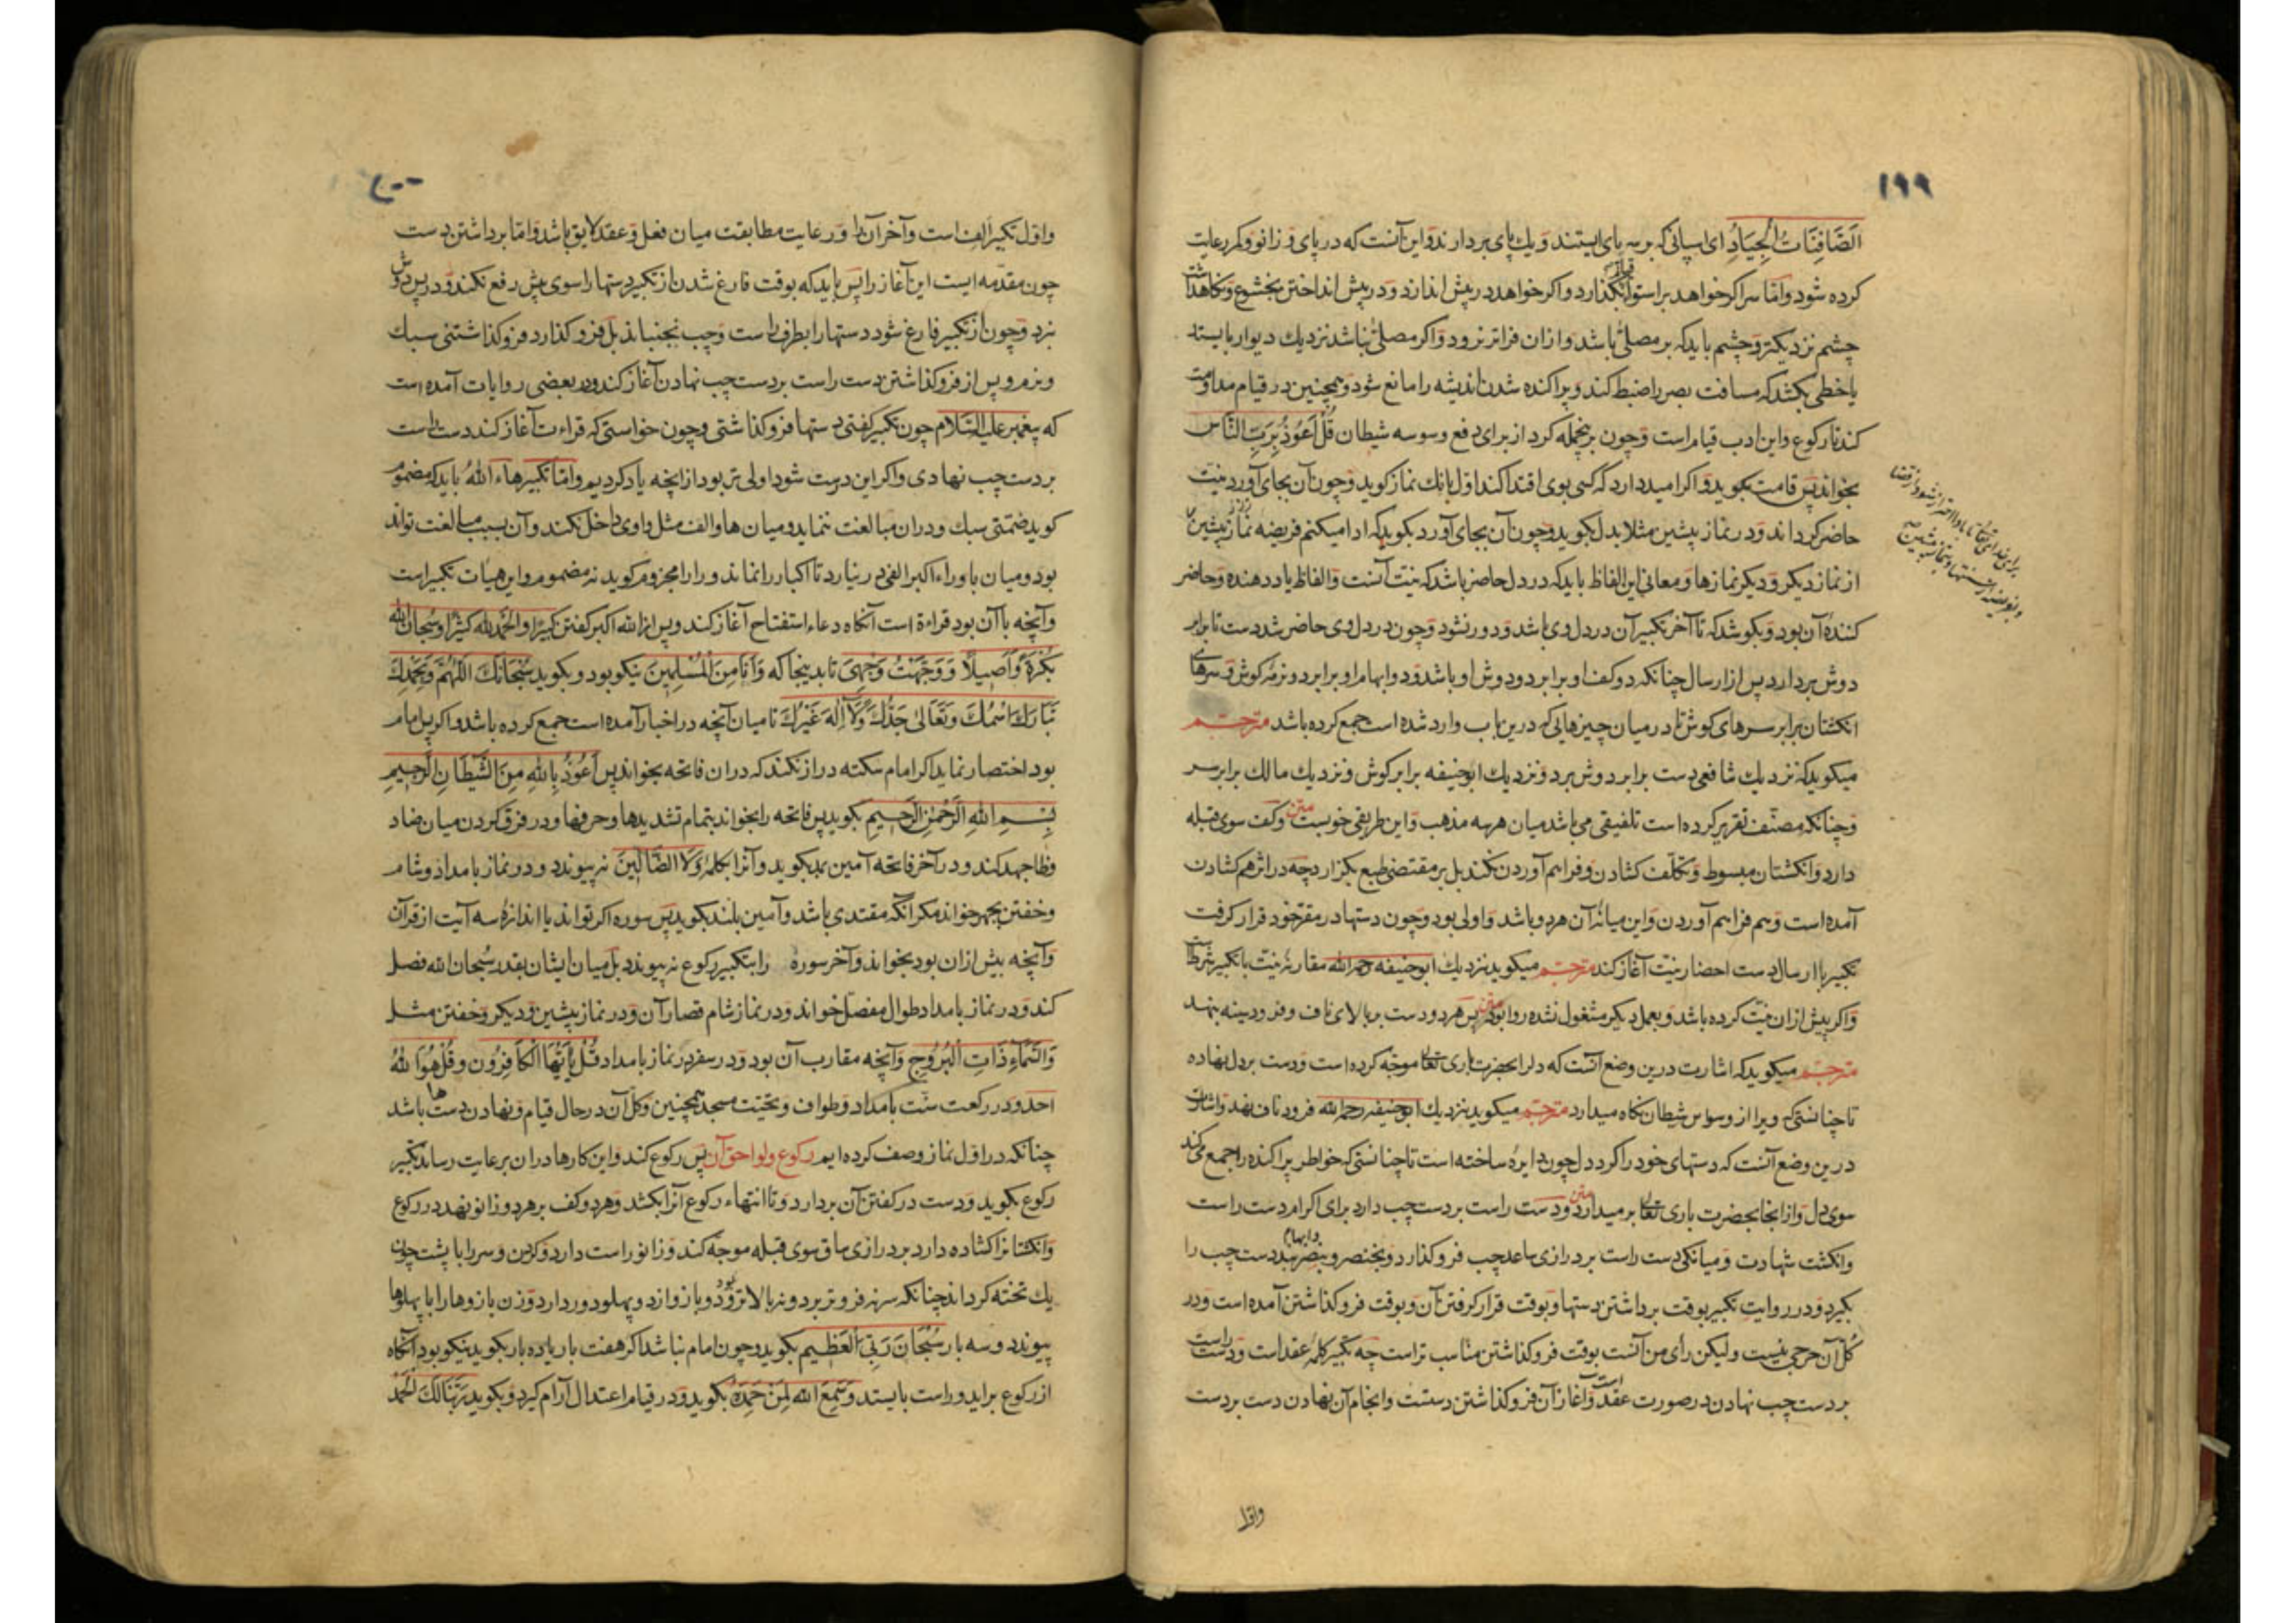 ۱۹۹
الصَّافِنَاتُ الْجِيَادُ ای اسپانی که بر سه پای ایستند و یك پای بردارند و این آنست که در پای و زانو و کمر رعایت
کرده شود و امّا سر اکر خواهد بر استوا بگذارد و اکر خواهد در پیش اندازد و در پیش انداختن بخشوع و نکاهداشت
چشم نزدیکتر و چشم باید که بر مصلّی باشد و از ان فراتر نرود و اکر مصلّی نباشد نزدیك دیوار بایستد
یا خطی بکشد که مسافت بصر را ضبط کند و پراکنده شدن اندیشه را مانع شود و همچنین در قیام مداومت
کند تا رکوع و این ادب قیام است و چون برینجمله کرد از برای دفع وسوسه شیطان قُلْ اَعُوذُ بِرَبِّ النَّاسِ
بخواند پس قامت بکوید و اکر امید دارد که کسی بوی اقتدا کند اوّل بانك نماز کوید و چون آن بجای آورد نیت
حاضر کرداند و در نماز پیشین مثلا بدل بکوید و چون آن بجای آورد بکوید که ادا میکنم فریضه نماز پیشین
از نماز دیکر و دیکر نمازها و معانی این الفاظ باید که در دل حاضر باشد که نیت آنست و الفاظ یاد دهنده و حاضر
کنندهٔ آن بود و بکوشد که تا آخر تکبیر آن در دل وی باشد و دور نشود و چون در دل وی حاضر شد دست تا برابر
دوش بردارد پس از ارسال چنانکه دو کف او برابر دو دوش او باشد و دو ابهام او برابر دو نرمهٔ کوش و سرهای
انکشتان برابر سرهای کوش تا در میان چیزهایی که درین باب وارد شده است جمع کرده باشد مترجم
میکوید که نزدیك شافعی دست برابر دوش برد و نزدیك ابوحنیفه برابر کوش و نزدیك مالك برابر سر
و چنانکه مصنّف تقریر کرده است تلفیقی می باشد میان هر سه مذهب و این طریقی خوبست متن و کف سوی قبله
دارد و انکشتان مبسوط و تکلّف کشادن و فراهم آوردن نکند بل بر مقتضی طبع بکزارد چه در اثر هم کشادن
آمده است و هم فراهم آوردن و این میانهٔ آن هر دو باشد و اولی بود و چون دستها در مقر خود قرار کرفت
تکبیر با ارسال دست احضار نیّت آغاز کند مترجم میکوید نزدیك ابوحنیفه رحمه الله مقارنهٔ نیت با تکبیر شرطست
و اکر پیش از ان نیّت کرده باشد و بعمل دیکر مشغول نشده روا بود متن پس هر دو دست بر بالای ناف و فرود سینه بنهد
مترجم میکوید که اشارت درین وضع آنست که دل را بحضرت باری تعالی موجّه کرده است و دست بر دل نهاده
تا چنانستی که ویرا از وسواس شیطان نکاه میدارد مترجم میکوید نزدیك ابوحنیفه رحمه الله فرود ناف نهد و اشارت
درین وضع آنست که دستهای خود را کرد دل چون دایره ساخته است تا چنانستی که خواطر پراکنده را جمع می کند
سوی دل و از انجا بحضرت باری تعالی بر میدارد متن و دست راست بر دست چب دارد برای اکرام دست راست
و انکشت شهادت و میانکی دست راست بر درازی ساعد چب فرو کذارد و بخنصر و بنصر و ابهام بند دست چب را
بکیرد و در روایت تکبیر بوقت برداشتن دستها و بوقت قرار کرفتن آن و بوقت فرو کذاشتن آمده است و در
کُلّ آن حرجی نیست و لیکن رأی من آنست بوقت فرو کذاشتن مناسب تر است چه تکبیر کلمهٔ عقد است و دست راست
بر دست چب نهادن در صورت عقد است و آغاز آن فرو کذاشتن دستست و انجام آن نهادن دست بر دست
برای خدای تعالی تا بادا احتراز شود از قضا
و بفریضه از سنتها و بنماز پیشین
و اوّل
۲۰۰
و اوّل تکبیر الف است و آخر آن را و رعایت مطابقت میان فعل و عقد لایق باشد و امّا برداشتن دست
چون مقدّمه ایست این آغاز را پس باید که بوقت فارغ شدن از تکبیر دستها را سوی پیش رفع نکند و در پس دوش
نبرد و چون از تکبیر فارغ شود دستها را بطرف راست و چب نجنباند بل فرو کذارد فرو کذاشتنی سبك
و نرم و پس از فرو کذاشتن دست راست بر دست چب نهادن آغاز کند و در بعضی روایات آمده است
که پیغمبر علیه السّلام چون تکبیر کفتی دستها فرو کذاشتی و چون خواستی که قراءت آغاز کند دست راست
بر دست چب نهادی و اکر این درست شود اولی تر بود از انچه یاد کردیم و امّا تکبیر هاء الله باید که مضموم
کوید ضمّتی سبك و در ان مبالغت ننماید و میان ها و الف مثل واوی داخل نکند و آن بسبب مبالغت تواند
بود و میان با و راء اکبر الفی در نیارد تا اکبار را نماند و را را مجزوم کوید نه مضموم و این هیأت تکبیر است
و آنچه با آن بود قراءة است آنکاه دعاء استفتاح آغاز کند و پس از الله اکبر کفتن کبیرًا و الحمد لله کثیرًا و سبحان الله
بُکْرَةً وَّاَصِیلًا وَ وَجَّهْتُ وَجْهِیَ تا بدینجا که وَ اَنَا مِنَ الْمُسْلِمِینَ نیکو بود و بکوید سُبْحَانَكَ اللّٰهُمَّ وَ بِحَمْدِكَ
تَبَارَكَ اسْمُكَ وَ تَعَالیٰ جَدُّكَ وَلَآ اِلٰهَ غَیْرُكَ تا میان آنچه در اخبار آمده است جمع کرده باشد و اکر پس امام
بود اختصار نماید اکر امام سکته دراز نکند که در ان فاتحه بخواند پس اَعُوذُ بِاللهِ مِنَ الشَّیْطَانِ الرَّجِیمِ
بِسْمِ اللهِ الرَّحْمٰنِ الرَّحِیمِ بکوید پس فاتحه را بخواند بتمام تشدیدها و حرفها و در فرق کردن میان ضاد
و ظا جهد کند و در آخر فاتحه آمین بمد بکوید و آنرا بکلمهٔ وَلَا الضَّالِّینَ نه پیوندد و در نماز بامداد و شام
و خفتن بجهر خواند مکر آنکه مقتدی باشد و آمین بلند بکوید پس سوره اکر تواند یا اندازهٔ سه آیت از قرآن
و آنچه بیش از ان بود بخواند و آخر سوره را بتکبیر رکوع نه پیوندد بل میان ایشان بقدر سُبحان الله فصل
کند و در نماز بامداد طوال مفصّل خواند و در نماز شام قصار آن و در نماز پیشین و دیکر و خفتن مثل
وَالسَّمَآءِ ذَاتِ الْبُرُوجِ و آنچه مقارب آن بود و در سفر در نماز بامداد قُلْ یٰٓاَیُّهَا الْکَافِرُونَ و قُلْ هُوَ اللهُ
احد و در رکعت سنّت بامداد و طواف و تحیّت مسجد همچنین و کلّ آن در حال قیام و نهادن دستها باشد
چنانکه در اوّل نماز وصف کرده ایم رکوع و لواحق آن پس رکوع کند و این کارها در ان برعایت رساند تکبیر
رکوع بکوید و دست در کفتن آن بردارد و تا انتهاء رکوع آنرا بکشد و هر دو کف بر هر دو زانو نهد در رکوع
و انکشتانرا کشاده دارد بر درازی ساق سوی قبله موجّه کند و زانو راست دارد و کردن و سر را با پشت چون
یك تخته کرداند چنانکه سر نه فروتر برد و نه بالاتر بود و بازو از دو پهلو دور دارد و زن بازوها را با پهلوها
پیوندد و سه بار سُبْحَانَ رَبِّیَ الْعَظِیمِ بکوید و چون امام نباشد اکر هفت بار یا ده بار بکوید نیکو بود آنکاه
از رکوع براید و راست بایستد و سَمِعَ اللهُ لِمَنْ حَمِدَهُ بکوید و در قیام اعتدال آرام کیرد و بکوید رَبَّنَا لَكَ الْحَمْدُ